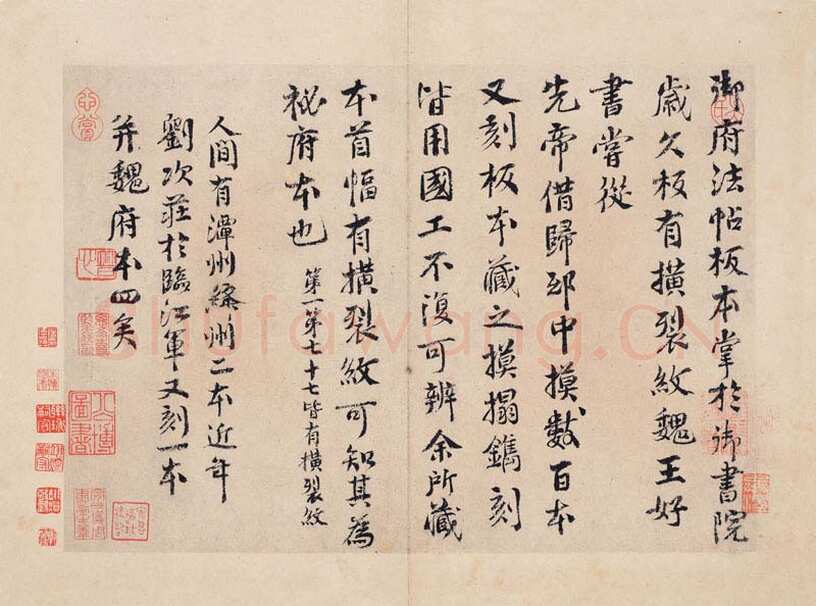 御府法帖板本掌於御書院
歲久板有橫裂紋魏王好
書嘗從
先帝借歸邸中摸數百本
又刻板本藏之摸搨鐫刻
皆用國工不復可辨余所藏
本首幅有橫裂紋可知其為
祕府本也 第一第七十七皆有橫裂紋
人間有潭州絳州二本近年
劉次莊於臨江軍又刻一本
并魏府本四矣
shufawang.CN